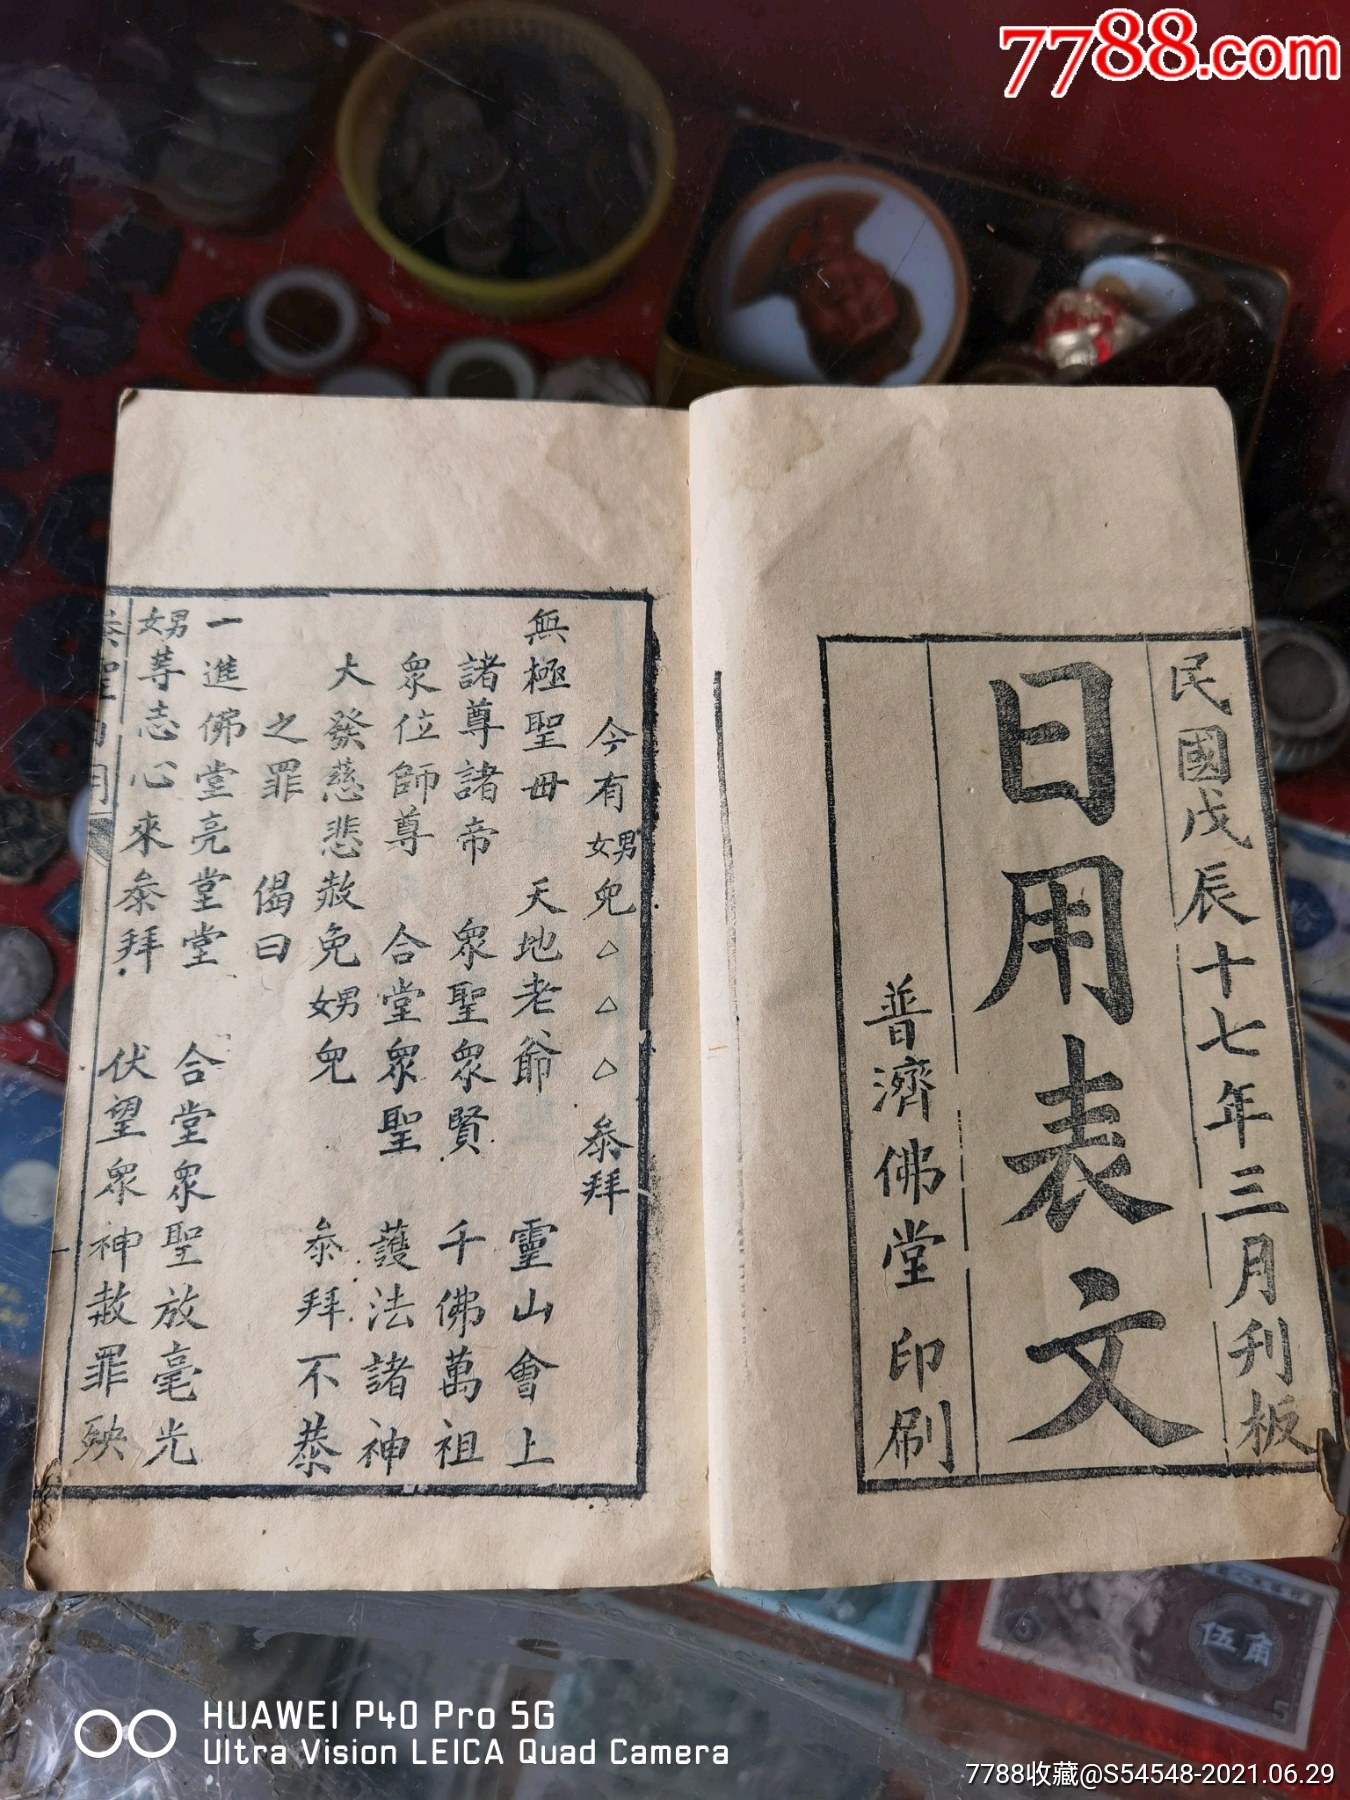 7788.com
民國戊辰十七年三月刊板
日用表文
普濟佛堂印刷
今有男女兒△△△叅拜
無極聖母 天地老爺 靈山會上
諸尊諸帝 眾聖眾賢 千佛萬祖
眾位師尊 合堂眾聖 護法諸神
大發慈悲赦免男女兒 叅拜不恭
之罪 偈曰
一進佛堂亮堂堂 合堂眾聖放毫光
男女等志心來叅拜 伏望眾神赦罪殃
伍角
5
HUAWEI P40 Pro 5G
Ultra Vision LEICA Quad Camera
7788收藏@S54548-2021.06.29